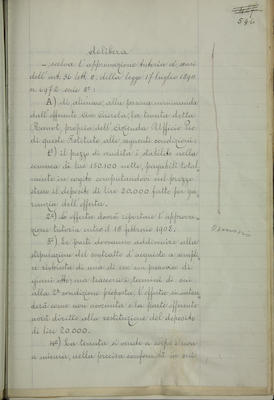 596
delibera
- salva l'approvazione tutoria ai sensi
dell'art. 36 lett. e. della legge 17 luglio 1890.
n. 6972 serie 3ª:
A) di alienare alla persona nominanda
dall'offerente la tenuta detta
propria dell'azienda Ufficio Pio
di questo Istituto alle seguenti condizioni:
1ª) il prezzo di vendita è stabilito nella
somma di lire 150.000 nette, pagabili total
mente in rogito computandosi nel prezzo
stesso il deposito di lire 20.000 fatto per ga
ranzia dell'offerta.
2ª) La offerta dovrà riportare l'approva
zione tutoria entro il 15 febbraio 1908.
3ª) Le parti dovranno addivenire alla
stipulazione del contratto d'acquisto a sempli
ce richiesta di una di esse su preavviso di
giorni otto; ma trascorsi i termini di cui
alla 2ª condizione preposta, l'offerta si inten
derà come non avvenuta e la parte offerente
avrà diritto alla restituzione del deposito
di lire 20.000.
4ª) La tenuta si vende a corpo e non
a misura, nella precisa conformità in cui